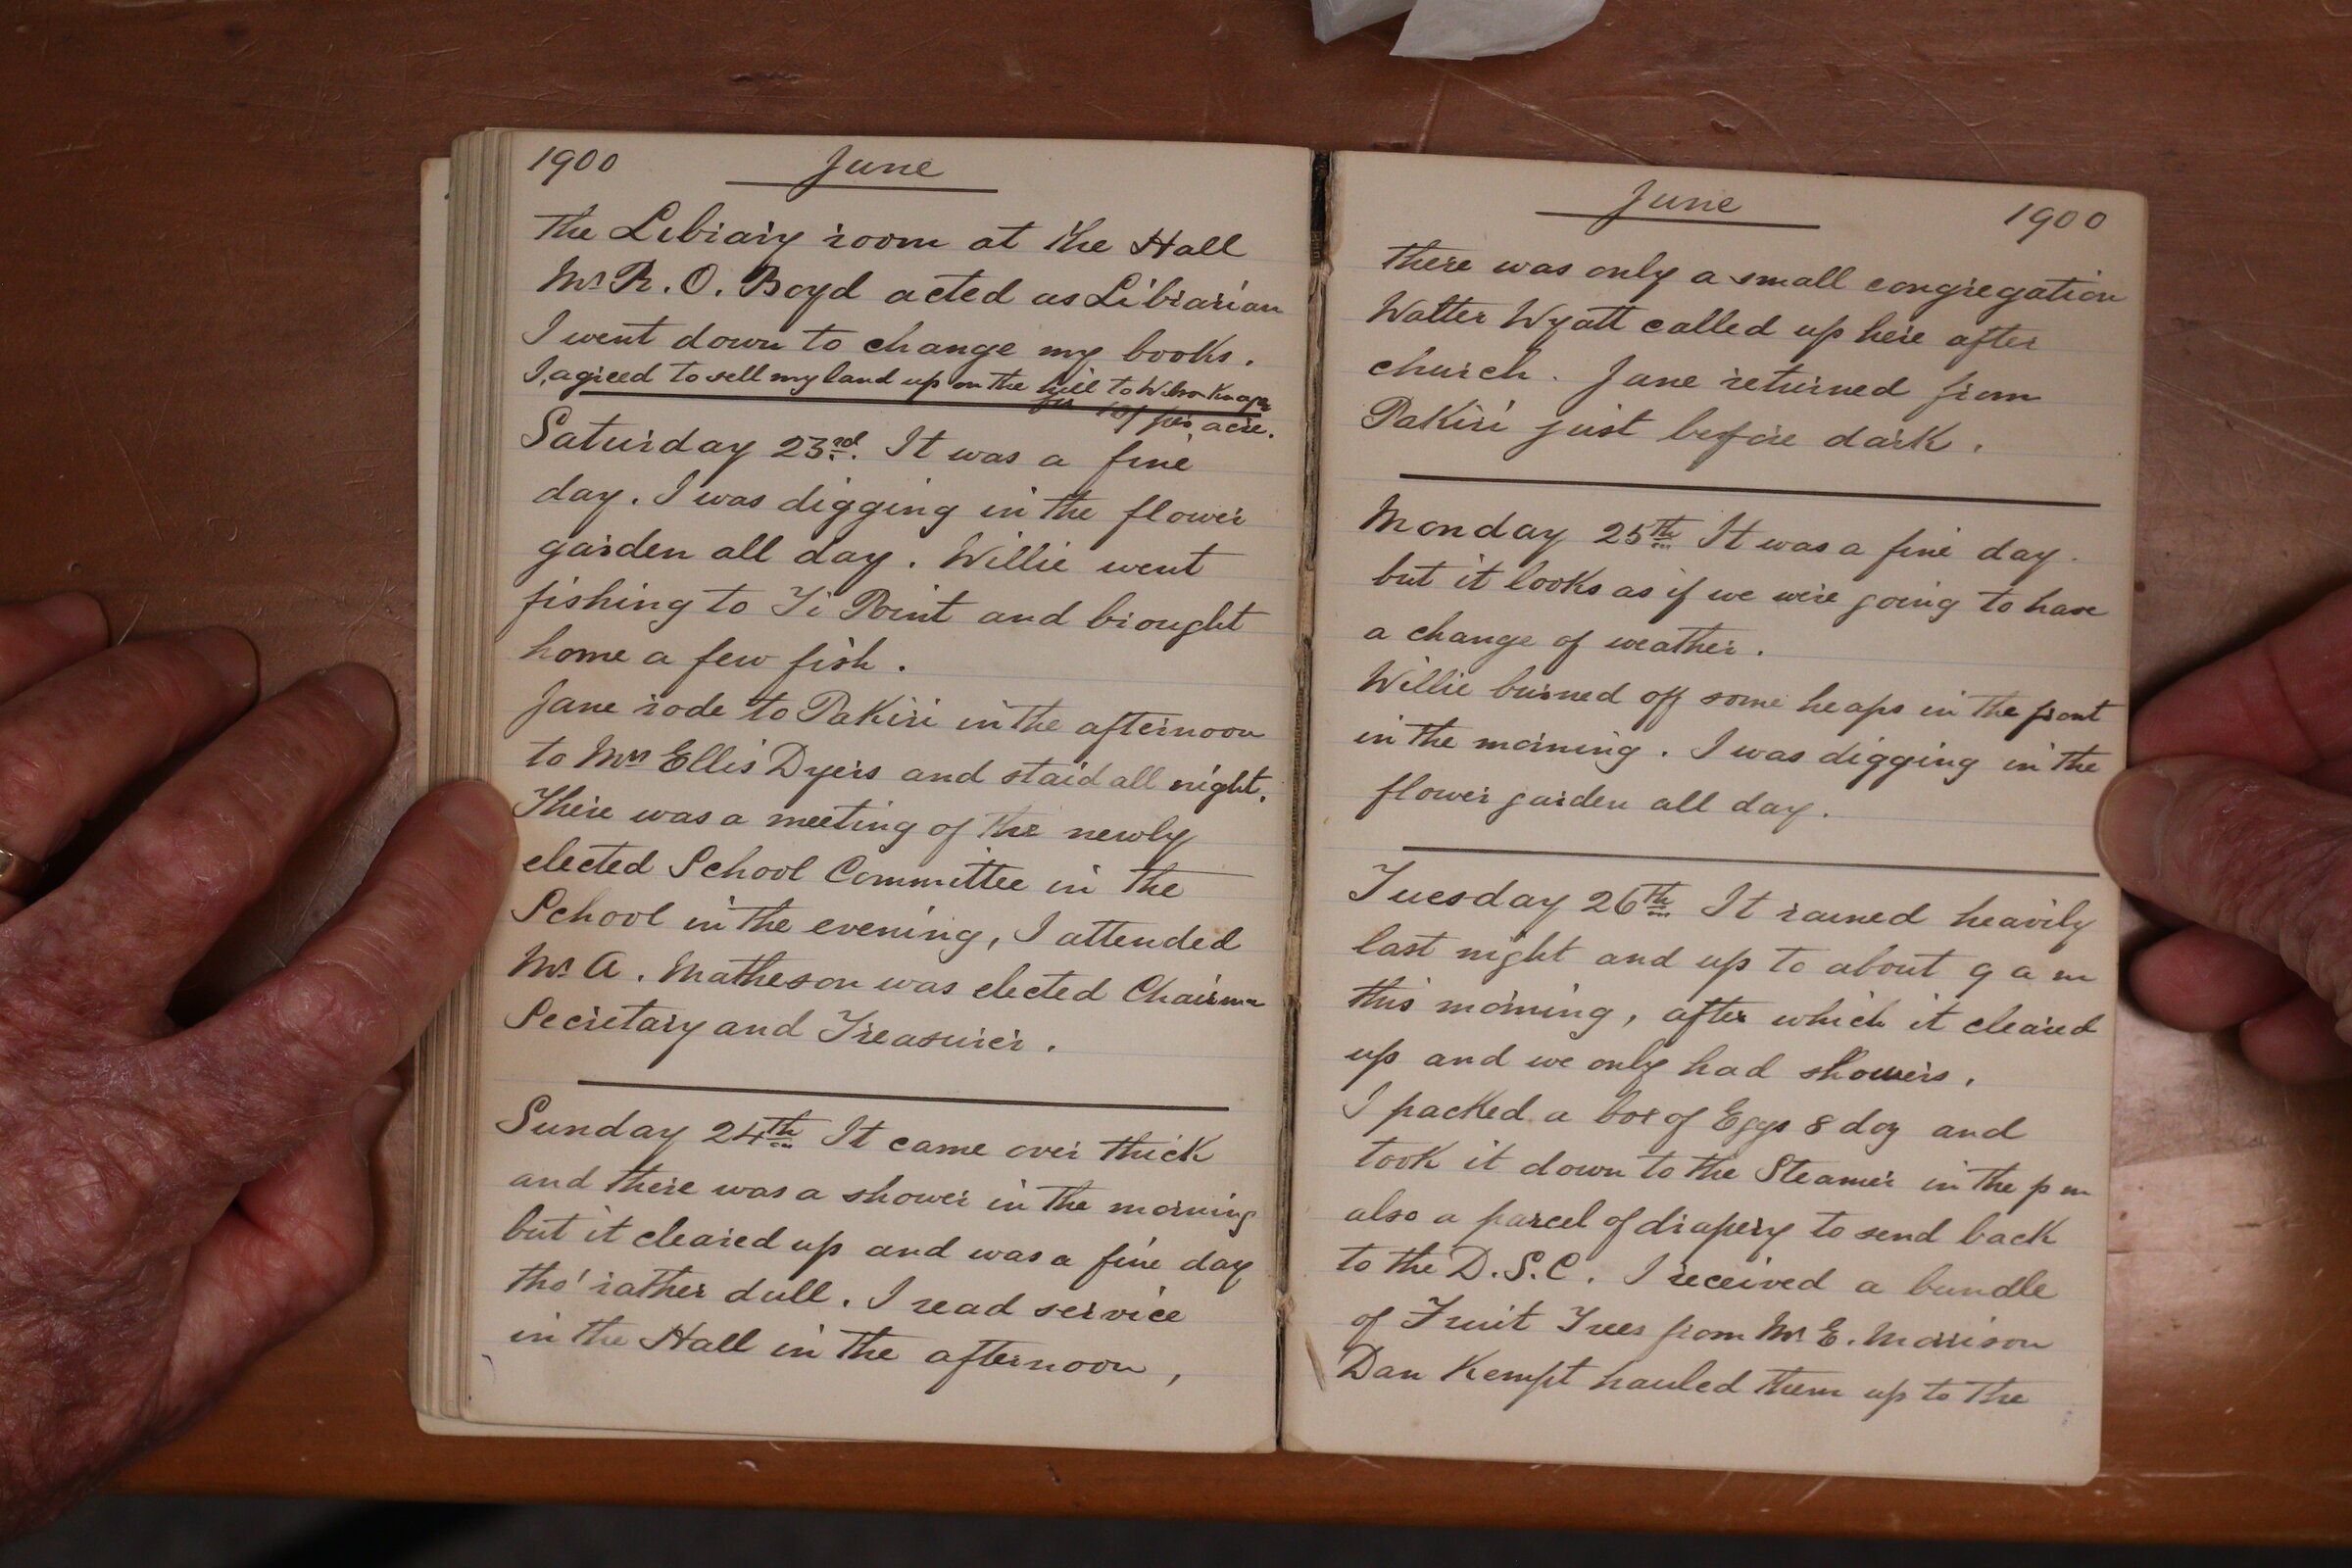 1900 June
the Library room at the Hall
Mr R. O. Boyd acted as Librarian
I went down to change my books.
I, agreed to sell my land up on the hill to
per acre.
Saturday 23rd. It was a fine
day. I was digging in the flower
garden all day. Willie went
fishing to Ti Point and brought
home a few fish.
Jane rode to Pakiri in the afternoon
to Mrs Ellis Dyers and staid all night.
There was a meeting of the newly
elected School Committee in the
School in the evening, I attended
Mr A. Matheson was elected Chairman
Secretary and Treasurer.
Sunday 24th It came over thick
and there was a shower in the morning
but it cleared up and was a fine day
tho' rather dull. I read service
in the Hall in the afternoon,
June 1900
there was only a small congregation
Walter Wyatt called up here after
church. Jane returned from
Pakiri just before dark.
Monday 25th It was a fine day.
but it looks as if we were going to have
a change of weather.
Willie burned off some heaps in the front
in the morning. I was digging in the
flower garden all day.
Tuesday 26th It rained heavily
last night and up to about 9 a m
this morning, after which it cleared
up and we only had showers.
I packed a box of Eggs 8 doz and
took it down to the Steamer in the p m
also a parcel of drapery to send back
to the D.S.C. I received a bundle
of Fruit Trees from Mr E. Morrison
Dan Kempt hauled them up to the